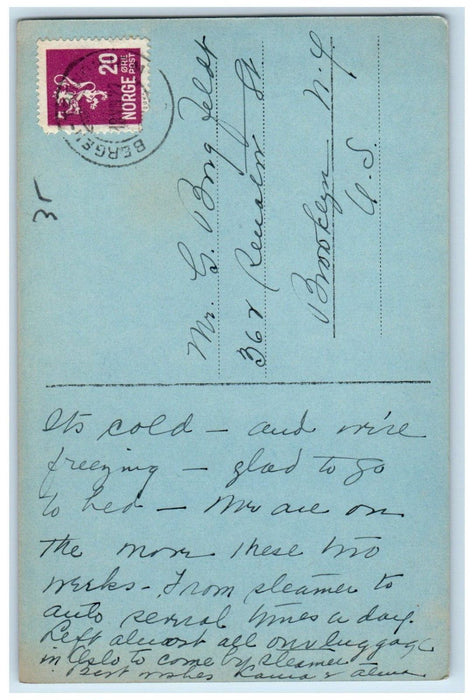 20
ØRE
POST
NORGE
BERGEN
35
Mr. G. Borgfeldt
St
Brooklyn N.Y.
U.S.
Its cold - and we're
freezing - glad to go
to bed - We are on
the move these two
weeks - From steamer to
auto several times a day.
Left almost all our luggage
in Oslo to come by steamer
Best wishes